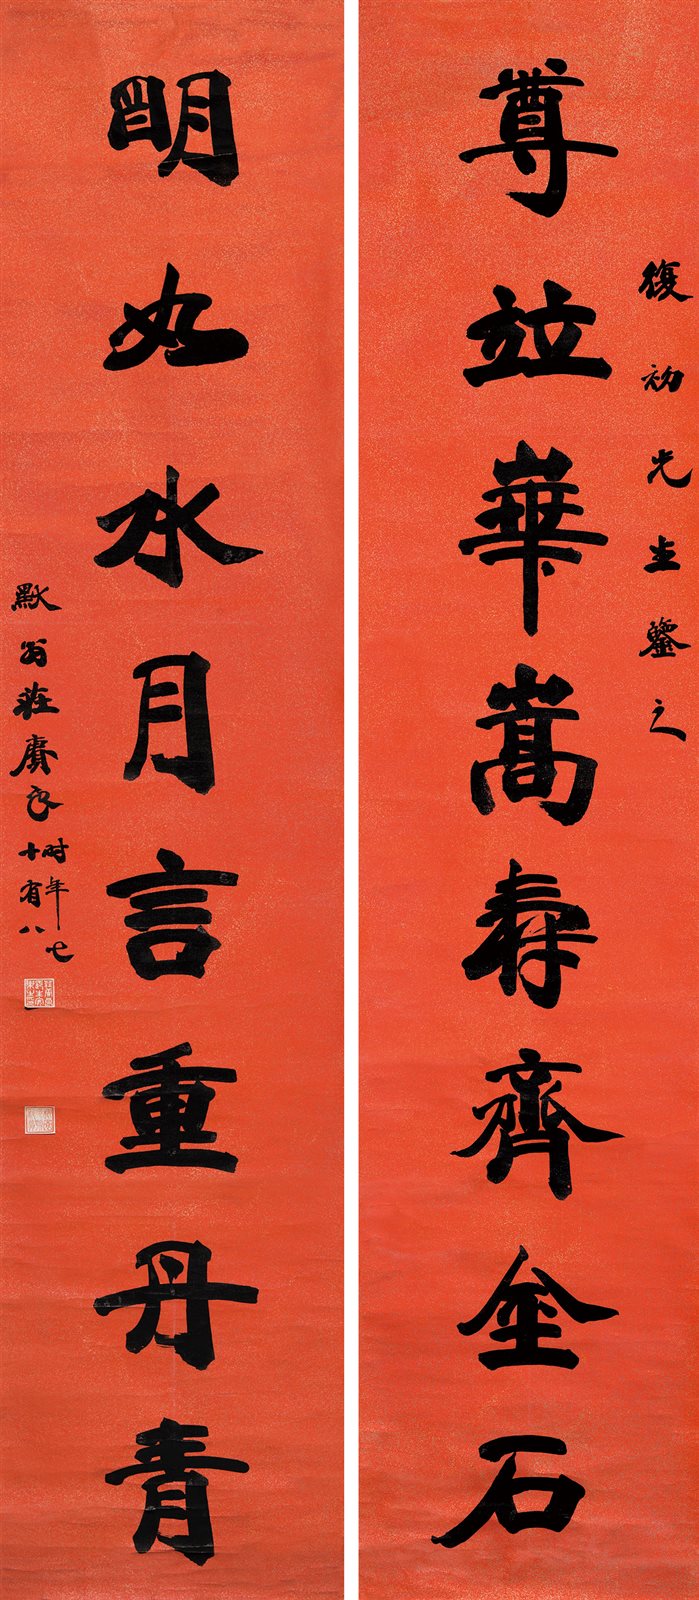 復初先生鑒之
尊並華嵩壽齊金石
明如水月言重丹青
默翁莊賡良
时年七
十有八